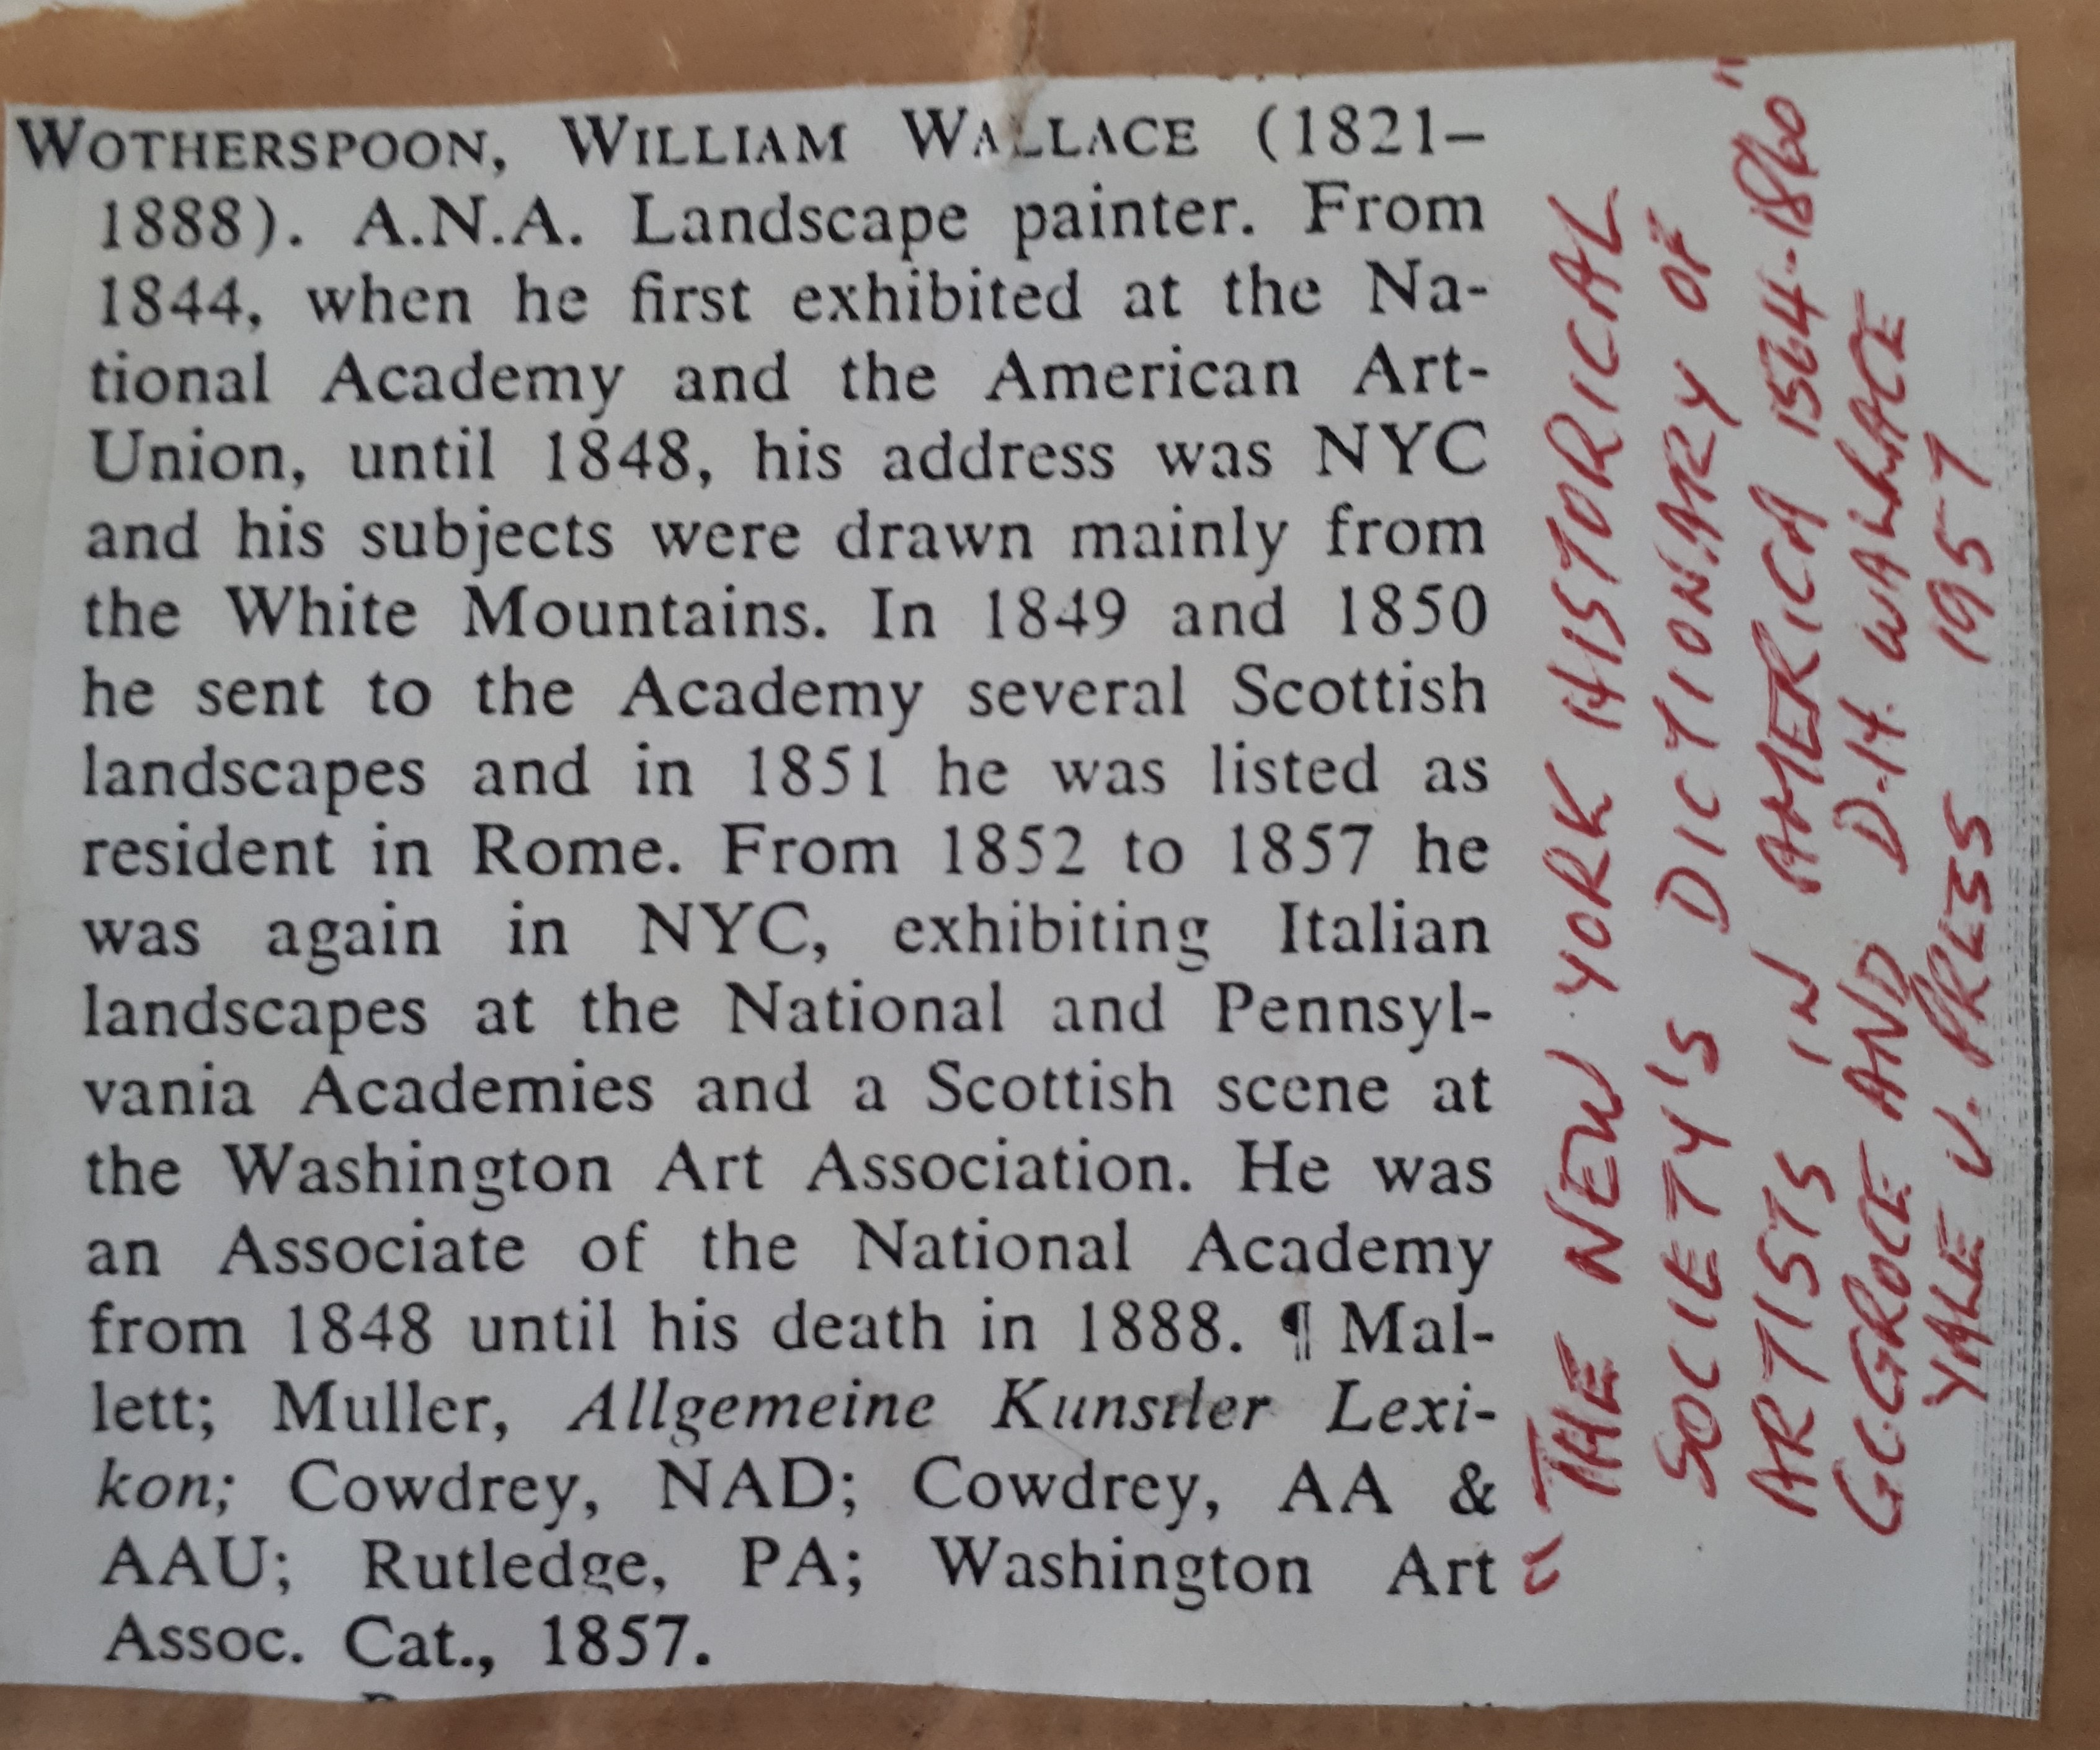 WOTHERSPOON, WILLIAM WALLACE (1821–
1888). A.N.A. Landscape painter. From
1844, when he first exhibited at the Na-
tional Academy and the American Art-
Union, until 1848, his address was NYC
and his subjects were drawn mainly from
the White Mountains. In 1849 and 1850
he sent to the Academy several Scottish
landscapes and in 1851 he was listed as
resident in Rome. From 1852 to 1857 he
was again in NYC, exhibiting Italian
landscapes at the National and Pennsyl-
vania Academies and a Scottish scene at
the Washington Art Association. He was
an Associate of the National Academy
from 1848 until his death in 1888. ¶ Mal-
lett; Muller, Allgemeine Kunstler Lexi-
kon; Cowdrey, NAD; Cowdrey, AA &
AAU; Rutledge, PA; Washington Art
Assoc. Cat., 1857.
"THE NEW YORK HISTORICAL
SOCIETY'S DICTIONARY OF
ARTISTS IN AMERICA 1564-1860"
G.C. GROCE AND D.H. WALLACE
YALE U. PRESS 1957